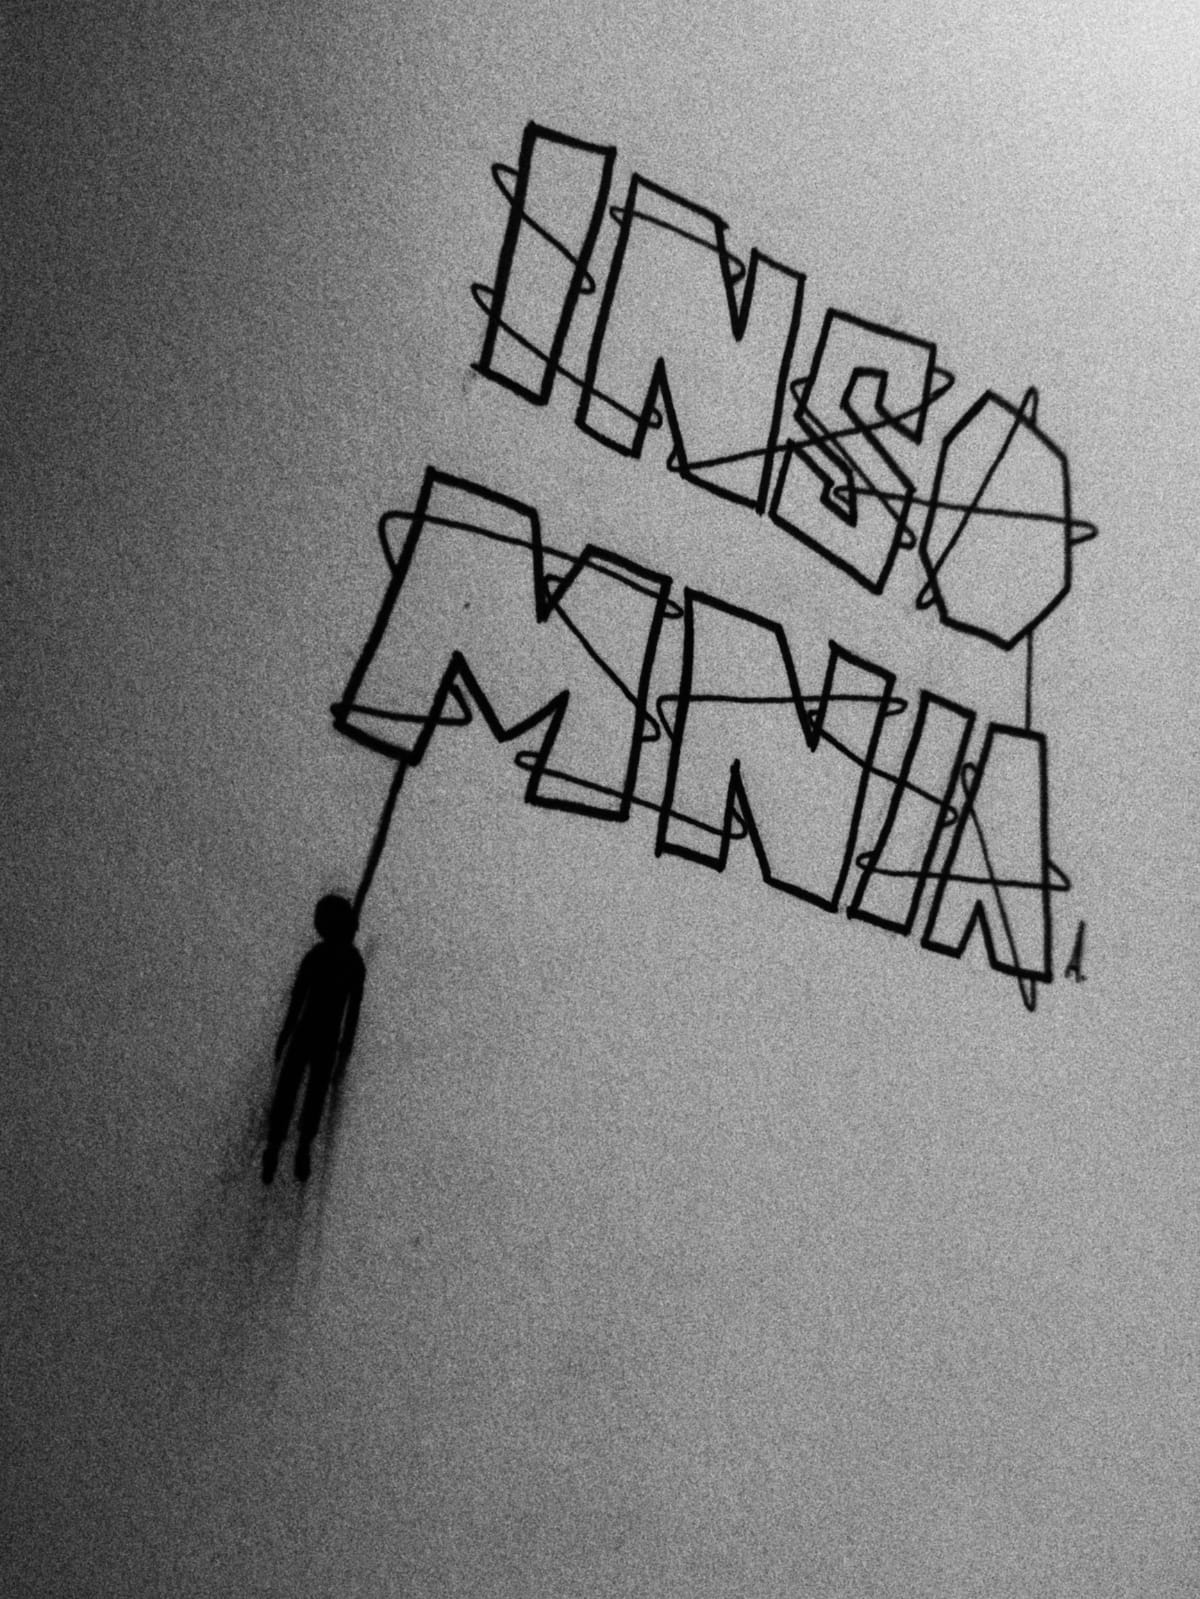 INSO
MNIA